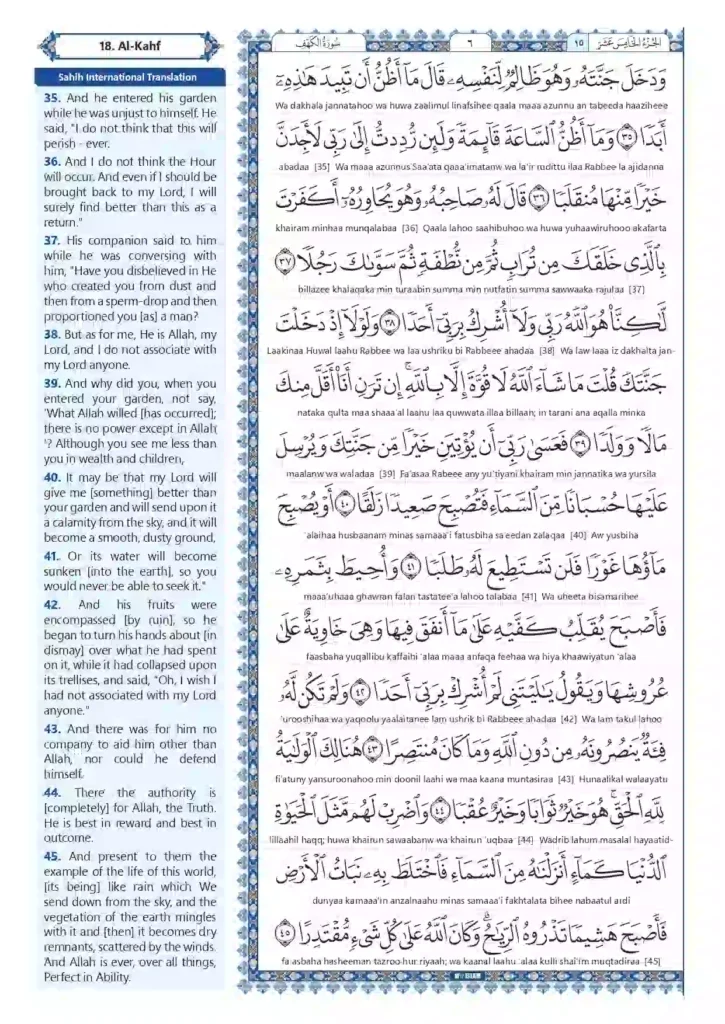 18. Al-Kahf
Sahih International Translation
35. And he entered his garden
while he was unjust to himself. He
said, "I do not think that this will
perish - ever.
36. And I do not think the Hour
will occur. And even if I should be
brought back to my Lord, I will
surely find better than this as a
return."
37. His companion said to him
while he was conversing with
him, "Have you disbelieved in He
who created you from dust and
then from a sperm-drop and then
proportioned you [as] a man?
38. But as for me, He is Allah, my
Lord, and I do not associate with
my Lord anyone.
39. And why did you, when you
entered your garden, not say,
'What Allah willed [has occurred];
there is no power except in Allah
'? Although you see me less than
you in wealth and children,
40. It may be that my Lord will
give me [something] better than
your garden and will send upon it
a calamity from the sky, and it will
become a smooth, dusty ground,
41. Or its water will become
sunken [into the earth], so you
would never be able to seek it."
42. And his fruits were
encompassed [by ruin], so he
began to turn his hands about [in
dismay] over what he had spent
on it, while it had collapsed upon
its trellises, and said, "Oh, I wish I
had not associated with my Lord
anyone."
43. And there was for him no
company to aid him other than
Allah, nor could he defend
himself.
44. There the authority is
[completely] for Allah, the Truth.
He is best in reward and best in
outcome.
45. And present to them the
example of the life of this world,
[its being] like rain which We
send down from the sky, and the
vegetation of the earth mingles
with it and [then] it becomes dry
remnants, scattered by the winds.
And Allah is ever, over all things,
Perfect in Ability.
الجزء الخامس عشر ١٥ ٦ سورة الكهف
وَدَخَلَ جَنَّتَهُۥ وَهُوَ ظَالِمٌ لِّنَفْسِهِۦ قَالَ مَآ أَظُنُّ أَن تَبِيدَ هَٰذِهِۦٓ
Wa dakhala jannatahoo wa huwa zaalimul linafsihee qaala maaa azunnu an tabeeda haaziheee
أَبَدًا ٣٥ وَمَآ أَظُنُّ ٱلسَّاعَةَ قَآئِمَةً وَلَئِن رُّدِدتُّ إِلَىٰ رَبِّى لَأَجِدَنَّ
abadaa [35] Wa maaa azunnus Saa'ata qaaa'imatanw wa la'ir rudittu ilaa Rabbee la ajidanna
خَيْرًا مِّنْهَا مُنقَلَبًا ٣٦ قَالَ لَهُۥ صَاحِبُهُۥ وَهُوَ يُحَاوِرُهُۥٓ أَكَفَرْتَ
khairam minhaa munqalabaa [36] Qaala lahoo saahibuhoo wa huwa yuhaawiruhooo akafarta
بِٱلَّذِى خَلَقَكَ مِن تُرَابٍ ثُمَّ مِن نُّطْفَةٍ ثُمَّ سَوَّىٰكَ رَجُلًا ٣٧
billazee khalaqaka min turaabin summa min nutfatin summa sawwaaka rajulaa [37]
لَّٰكِنَّا۠ هُوَ ٱللَّهُ رَبِّى وَلَآ أُشْرِكُ بِرَبِّىٓ أَحَدًا ٣٨ وَلَوْلَآ إِذْ دَخَلْتَ
Laakinaa Huwal laahu Rabbee wa laa ushriku bi Rabbeee ahadaa [38] Wa law laaa iz dakhalta jan-
جَنَّتَكَ قُلْتَ مَا شَآءَ ٱللَّهُ لَا قُوَّةَ إِلَّا بِٱللَّهِ ۚ إِن تَرَنِ أَنَا۠ أَقَلَّ مِنكَ
nataka qulta maa shaaa'al laahu laa quwwata illaa billaah; in tarani ana aqalla minka
مَالًا وَوَلَدًا ٣٩ فَعَسَىٰ رَبِّىٓ أَن يُؤْتِيَنِ خَيْرًا مِّن جَنَّتِكَ وَيُرْسِلَ
maalanw wa waladaa [39] Fa'asaa Rabeee any yu'tiyani khairam min jannatika wa yursila
عَلَيْهَا حُسْبَانًا مِّنَ ٱلسَّمَآءِ فَتُصْبِحَ صَعِيدًا زَلَقًا ٤٠ أَوْ يُصْبِحَ
'alaihaa husbaanam minas samaaa'i fatusbiha sa'eedan zalaqaa [40] Aw yusbiha
مَآؤُهَا غَوْرًا فَلَن تَسْتَطِيعَ لَهُۥ طَلَبًا ٤١ وَأُحِيطَ بِثَمَرِهِۦ
maaa'uhaaa ghawran falan tastatee'a lahoo talabaa [41] Wa uheeta bisamarihee
فَأَصْبَحَ يُقَلِّبُ كَفَّيْهِ عَلَىٰ مَآ أَنفَقَ فِيهَا وَهِىَ خَاوِيَةٌ عَلَىٰ
faasbaha yuqallibu kaffaihi 'alaa maaa anfaqa feehaa wa hiya khaawiyatun 'alaa
عُرُوشِهَا وَيَقُولُ يَٰلَيْتَنِى لَمْ أُشْرِكْ بِرَبِّىٓ أَحَدًا ٤٢ وَلَمْ تَكُن لَّهُۥ
'urooshihaa wa yaqoolu yaalaitanee lam ushrik bi Rabbeee ahadaa [42] Wa lam takul lahoo
فِئَةٌ يَنصُرُونَهُۥ مِن دُونِ ٱللَّهِ وَمَا كَانَ مُنتَصِرًا ٤٣ هُنَالِكَ ٱلْوَلَٰيَةُ
fi'atuny yansuroonahoo min doonil laahi wa maa kaana muntasiraa [43] Hunaalikal walaayatu
لِلَّهِ ٱلْحَقِّ ۚ هُوَ خَيْرٌ ثَوَابًا وَخَيْرٌ عُقْبًا ٤٤ وَٱضْرِبْ لَهُم مَّثَلَ ٱلْحَيَوٰةِ
lillaahil haqq; huwa khairun sawaabanw wa khairun 'uqbaa [44] Wadrib lahum masalal hayaatid-
ٱلدُّنْيَا كَمَآءٍ أَنزَلْنَٰهُ مِنَ ٱلسَّمَآءِ فَٱخْتَلَطَ بِهِۦ نَبَاتُ ٱلْأَرْضِ
dunyaa kamaaa'in anzalnaahu minas samaaa'i fakhtalata bihee nabaatul ardi
فَأَصْبَحَ هَشِيمًا تَذْرُوهُ ٱلرِّيَٰحُ ۗ وَكَانَ ٱللَّهُ عَلَىٰ كُلِّ شَىْءٍ مُّقْتَدِرًا ٤٥
fa asbaha hasheeman tazroo hur riyaah; wa kaanal laahu 'alaa kulli shai'im muqtadiraa [45]